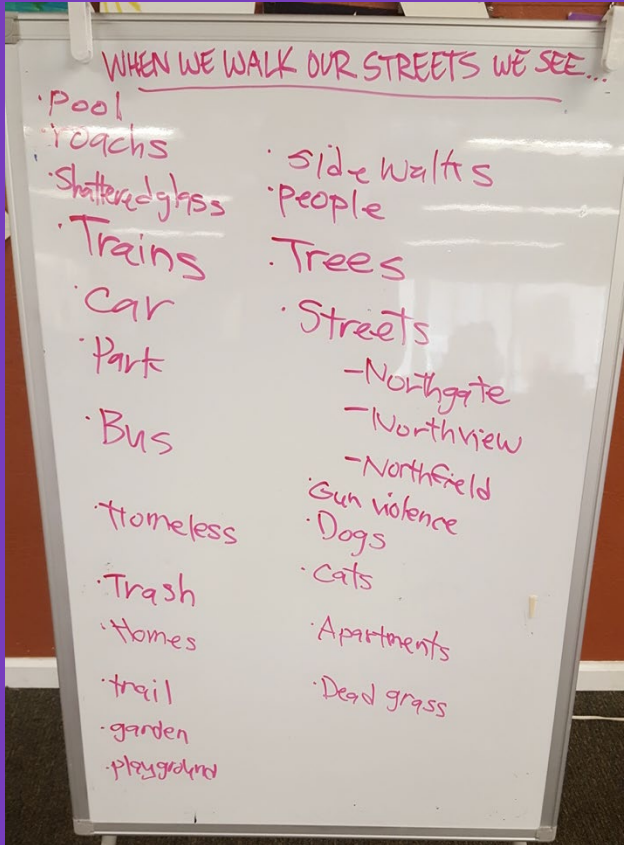 WHEN WE WALK OUR STREETS WE SEE...
·Pool
·roachs
·Shattered glass
·Trains
·Car
·Park
·Bus
·Homeless
·Trash
·Homes
·trail
·garden
·playground
·Side Walks
·People
·Trees
·Streets
-Northgate
-Northview
-Northfield
·Gun violence
·Dogs
·Cats
·Apartments
·Dead grass